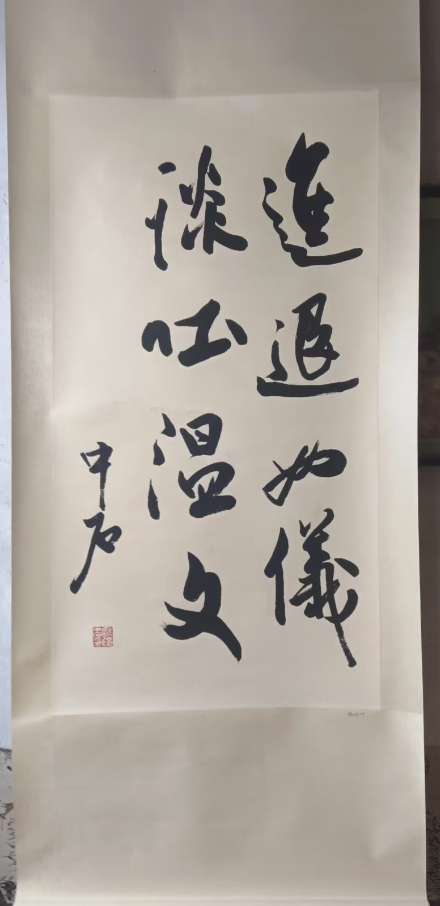 進退如儀
談吐温文
中石